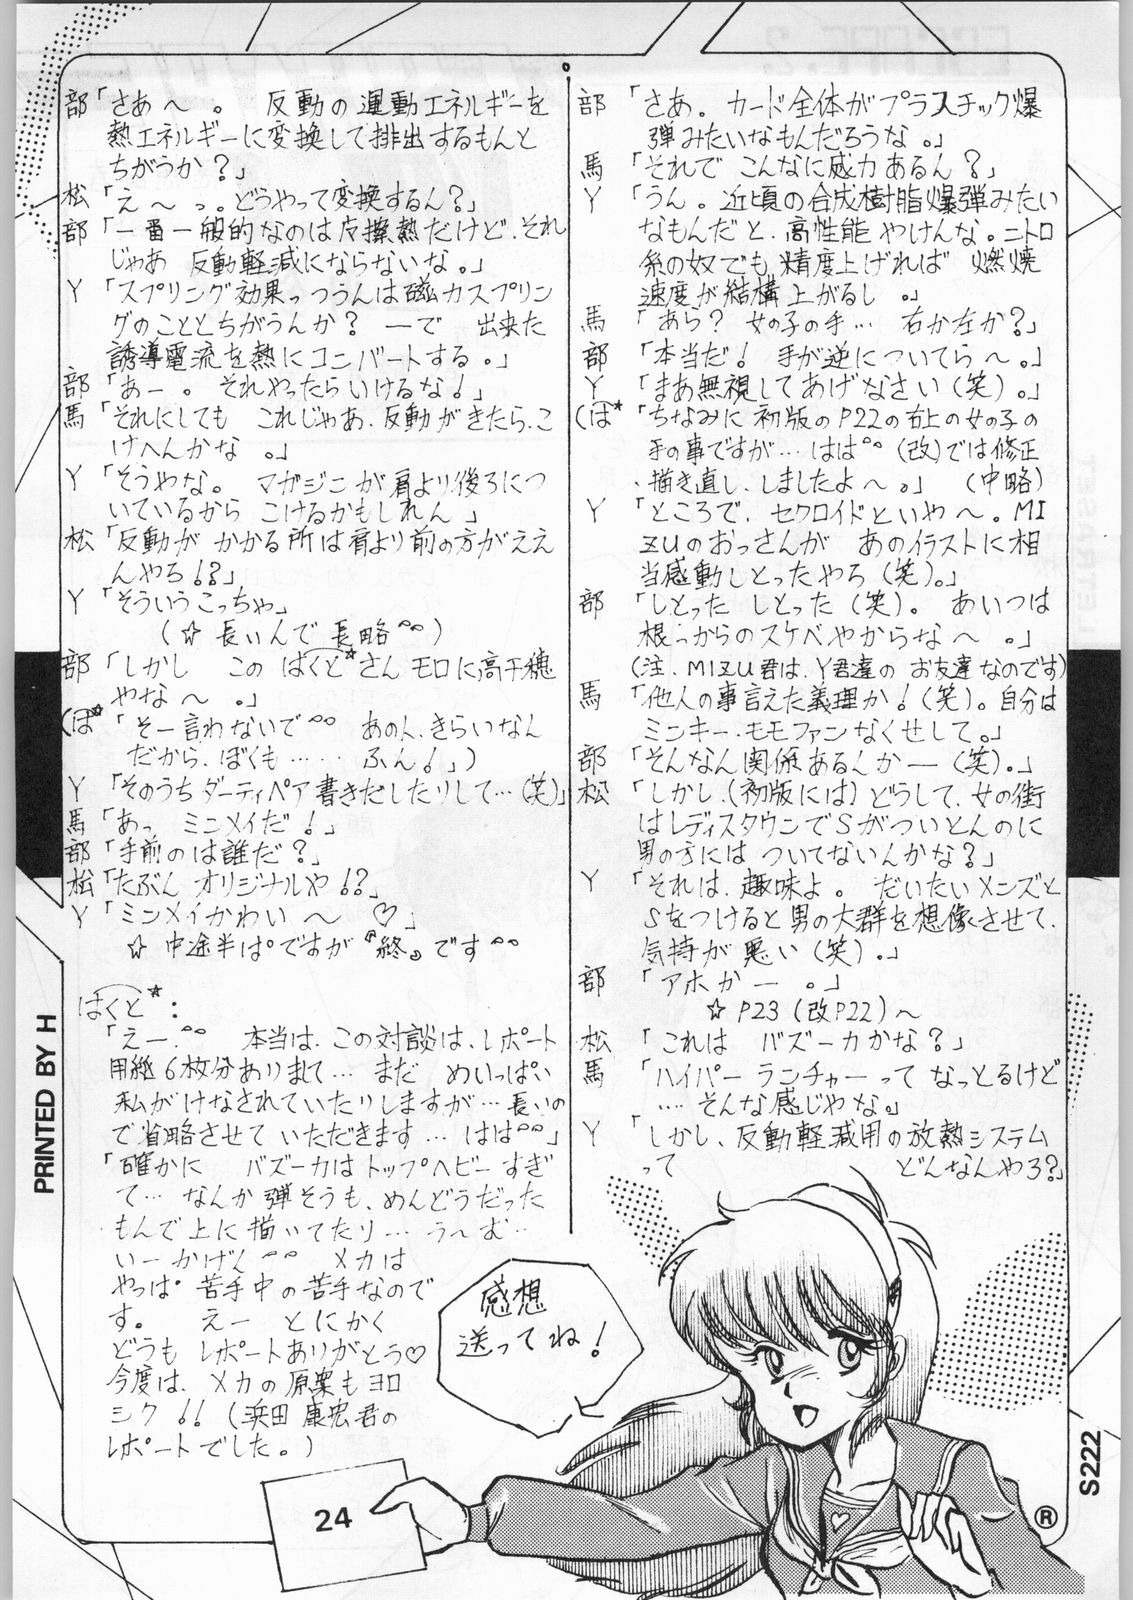 部「さあ。カード全体がプラスチック爆
弾みたいなもんだろうな。」
馬「それで こんなに威力あるん?」
Y「うん。近頃の合成樹脂爆弾みたい
なもんだと、高性能やけんな。ニトロ
系の奴でも 精度上げれば 燃焼
速度が結構上がるし 。」
馬「あら? 女の子の手… 右か左か?」
部「本当だ! 手が逆についてら〜。」
Y「まあ無視してあげなさい(笑)。」
(ぱ*「ちなみに初版のP22の右上の女の子の
手の事ですが…ははの(改)では修正
、描き直し、しましたよ〜。」 (中略)
Y「ところで、セクロイドといや〜。MI
ZUのおっさんが あのイラストに相
当感動しとったやろ(笑)。」
部「しとった しとった(笑)。 あいつは
根っからのスケベやからな〜 。」
(注、MIZU君は、Y君達の お友達なのです)
馬「他人の事言えた義理か!(笑)。自分は
ミンキー・モモファンなくせして。」
部「そんなん関係あるんかー(笑)。」
松「しかし、(初版には)どうして、女の街
はレディスタウンでSがついとんのに
男の方には ついてないんかな?」
Y「それは、趣味よ。 だいたいメンズと
Sをつけると男の大群を想像させて、
気持が悪い(笑)。」
部「アホかー 。」
☆P23(改P22)〜
松「これは バズーカかな?」
馬「ハイパーランチャーって なっとるけど
…そんな感じやな。」
Y「しかし、反動軽減用の放熱システム
って どんなんやろ?」
部「さあ〜。 反動の運動エネルギーを
熱エネルギーに変換して排出するもんと
ちがうか?」
松「え〜っ。どうやって変換するん?」
部「一番一般的なのは摩擦熱だけど、それ
じゃあ 反動軽減にならないな。」
Y「スプリング効果っつうんは磁力スプリン
グのこととちがうんか? ーで 出来た
誘導電流を熱にコンバートする。」
部「あー。それやったらいけるな!」
馬「それにしても これじゃあ、反動がきたら、こ
けへんかな 。」
Y「そうやな。 マガジンが肩より後ろにつ
いているから こけるかもしれん」
松「反動が かかる所は肩より前の方がええ
んやろ!?」
Y「そういうこっちゃ」
(☆長いんで長略)
部「しかし この ぱくと*さん モロに高千穂
やな〜 。」
(ぱ*「そー言わないで あの人、きらいなん
だから、ぼくも…… ふん!」)
Y「そのうちダーティペア書きだしたりして…(笑)」
馬「あっ ミンメイだ!」
部「手前のは誰だ?」
松「たぶん オリジナルや!?」
Y「ミンメイかわい〜 ♡」
☆中途半ぱですが『終』です
ぱくと*:
「えー、 本当は、この対談は、レポート
用紙6枚分ありまして… まだ めいっぱい
私がけなされていたりしますが…長いの
で省略させて いただきます…はは」
「確かに バズーカはトップヘビーすぎ
て… なんか弾そうも、めんどうだった
もんで上に描いてたり… う〜む…
いーかげん メカは
やっぱ苦手中の苦手なので
す。 えー とにかく
どうも レポートありがとう♡
今度は、メカの原案もヨロ
シク!!(浜田康宏君の
レポートでした。)
感想
送ってね!
24
PRINTED BY H
S222
®